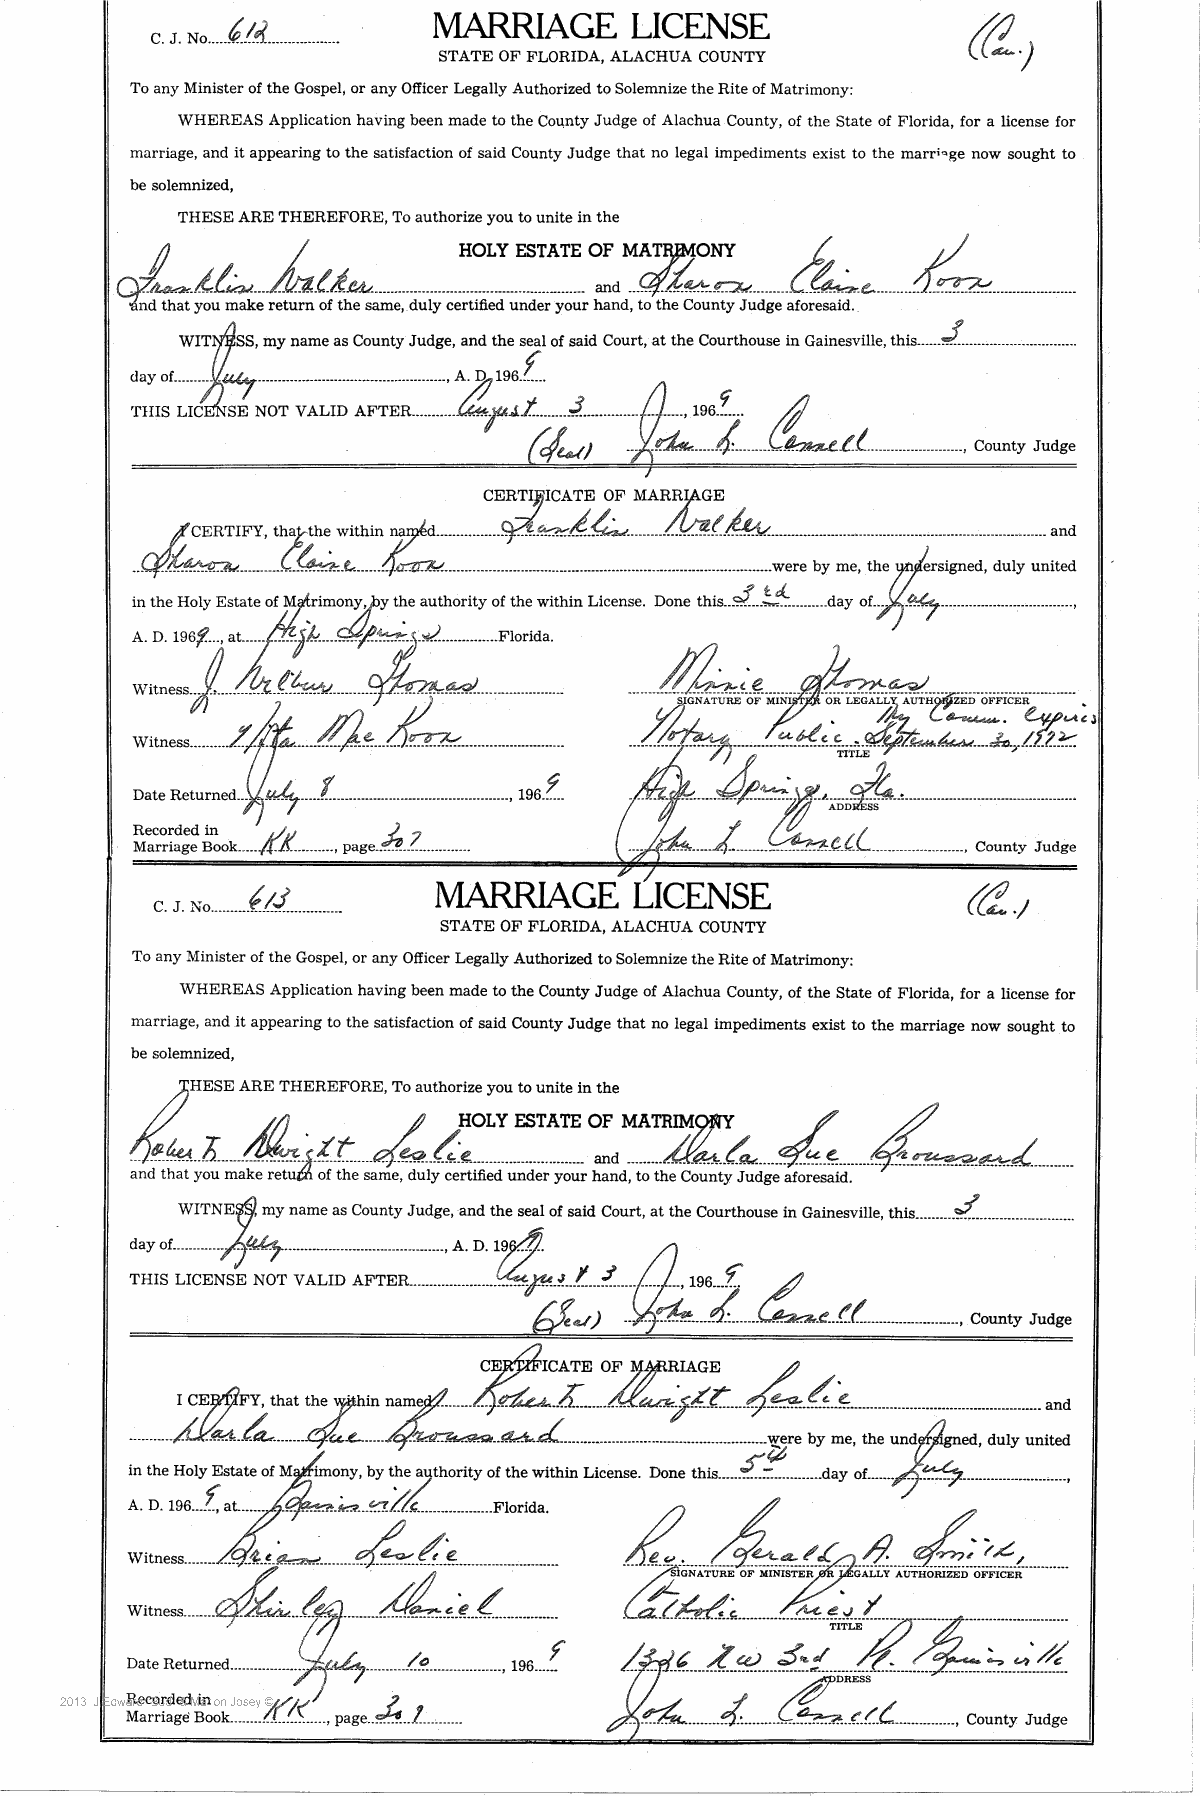 C. J. No. 612 MARRIAGE LICENSE (Cau.)
STATE OF FLORIDA, ALACHUA COUNTY
To any Minister of the Gospel, or any Officer Legally Authorized to Solemnize the Rite of Matrimony:
WHEREAS Application having been made to the County Judge of Alachua County, of the State of Florida, for a license for
marriage, and it appearing to the satisfaction of said County Judge that no legal impediments exist to the marriage now sought to
be solemnized,
THESE ARE THEREFORE, To authorize you to unite in the
HOLY ESTATE OF MATRIMONY
Franklin Walker and Sharon Elaine Koon
and that you make return of the same, duly certified under your hand, to the County Judge aforesaid.
WITNESS, my name as County Judge, and the seal of said Court, at the Courthouse in Gainesville, this 3
day of July, A. D. 1969
THIS LICENSE NOT VALID AFTER August 3, 1969
(Seal) John L. Connell, County Judge
CERTIFICATE OF MARRIAGE
I CERTIFY, that the within named Franklin Walker and
Sharon Elaine Koon were by me, the undersigned, duly united
in the Holy Estate of Matrimony, by the authority of the within License. Done this 3rd day of July,
A. D. 1969, at High Springs Florida.
Witness J. Wilbur Thomas Minnie Thomas
SIGNATURE OF MINISTER OR LEGALLY AUTHORIZED OFFICER
My Comm. Expires
Witness Mae Koon Notary Public. September 30, 1972
TITLE
Date Returned July 8, 1969 High Springs, Fla.
ADDRESS
Recorded in
Marriage Book KK, page 307 John L. Connell, County Judge
C. J. No. 613 MARRIAGE LICENSE (Cau.)
STATE OF FLORIDA, ALACHUA COUNTY
To any Minister of the Gospel, or any Officer Legally Authorized to Solemnize the Rite of Matrimony:
WHEREAS Application having been made to the County Judge of Alachua County, of the State of Florida, for a license for
marriage, and it appearing to the satisfaction of said County Judge that no legal impediments exist to the marriage now sought to
be solemnized,
THESE ARE THEREFORE, To authorize you to unite in the
HOLY ESTATE OF MATRIMONY
Robert Dwight Leslie and Darla Sue Broussard
and that you make return of the same, duly certified under your hand, to the County Judge aforesaid.
WITNESS, my name as County Judge, and the seal of said Court, at the Courthouse in Gainesville, this 3
day of July, A. D. 1969.
THIS LICENSE NOT VALID AFTER August 3, 1969
(Seal) John L. Connell, County Judge
CERTIFICATE OF MARRIAGE
I CERTIFY, that the within named Robert Dwight Leslie and
Darla Sue Broussard were by me, the undersigned, duly united
in the Holy Estate of Matrimony, by the authority of the within License. Done this 5th day of July,
A. D. 1969, at Gainesville Florida.
Witness Brian Leslie Rev. Gerald A. Smith,
SIGNATURE OF MINISTER OR LEGALLY AUTHORIZED OFFICER
Witness Shirley Daniel Catholic Priest
TITLE
Date Returned July 10, 1969 1326 NW 3rd Pl. Gainesville
ADDRESS
Recorded in
Marriage Book KK, page 307 John L. Connell, County Judge